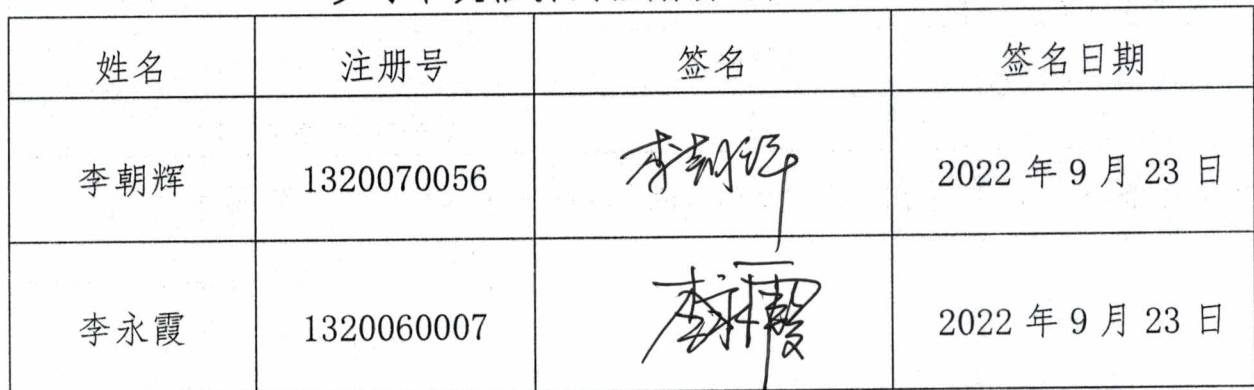 姓名 注册号 签名 签名日期
李朝辉 1320070056 李朝辉 2022 年 9 月 23 日
李永霞 1320060007 李永霞 2022 年 9 月 23 日